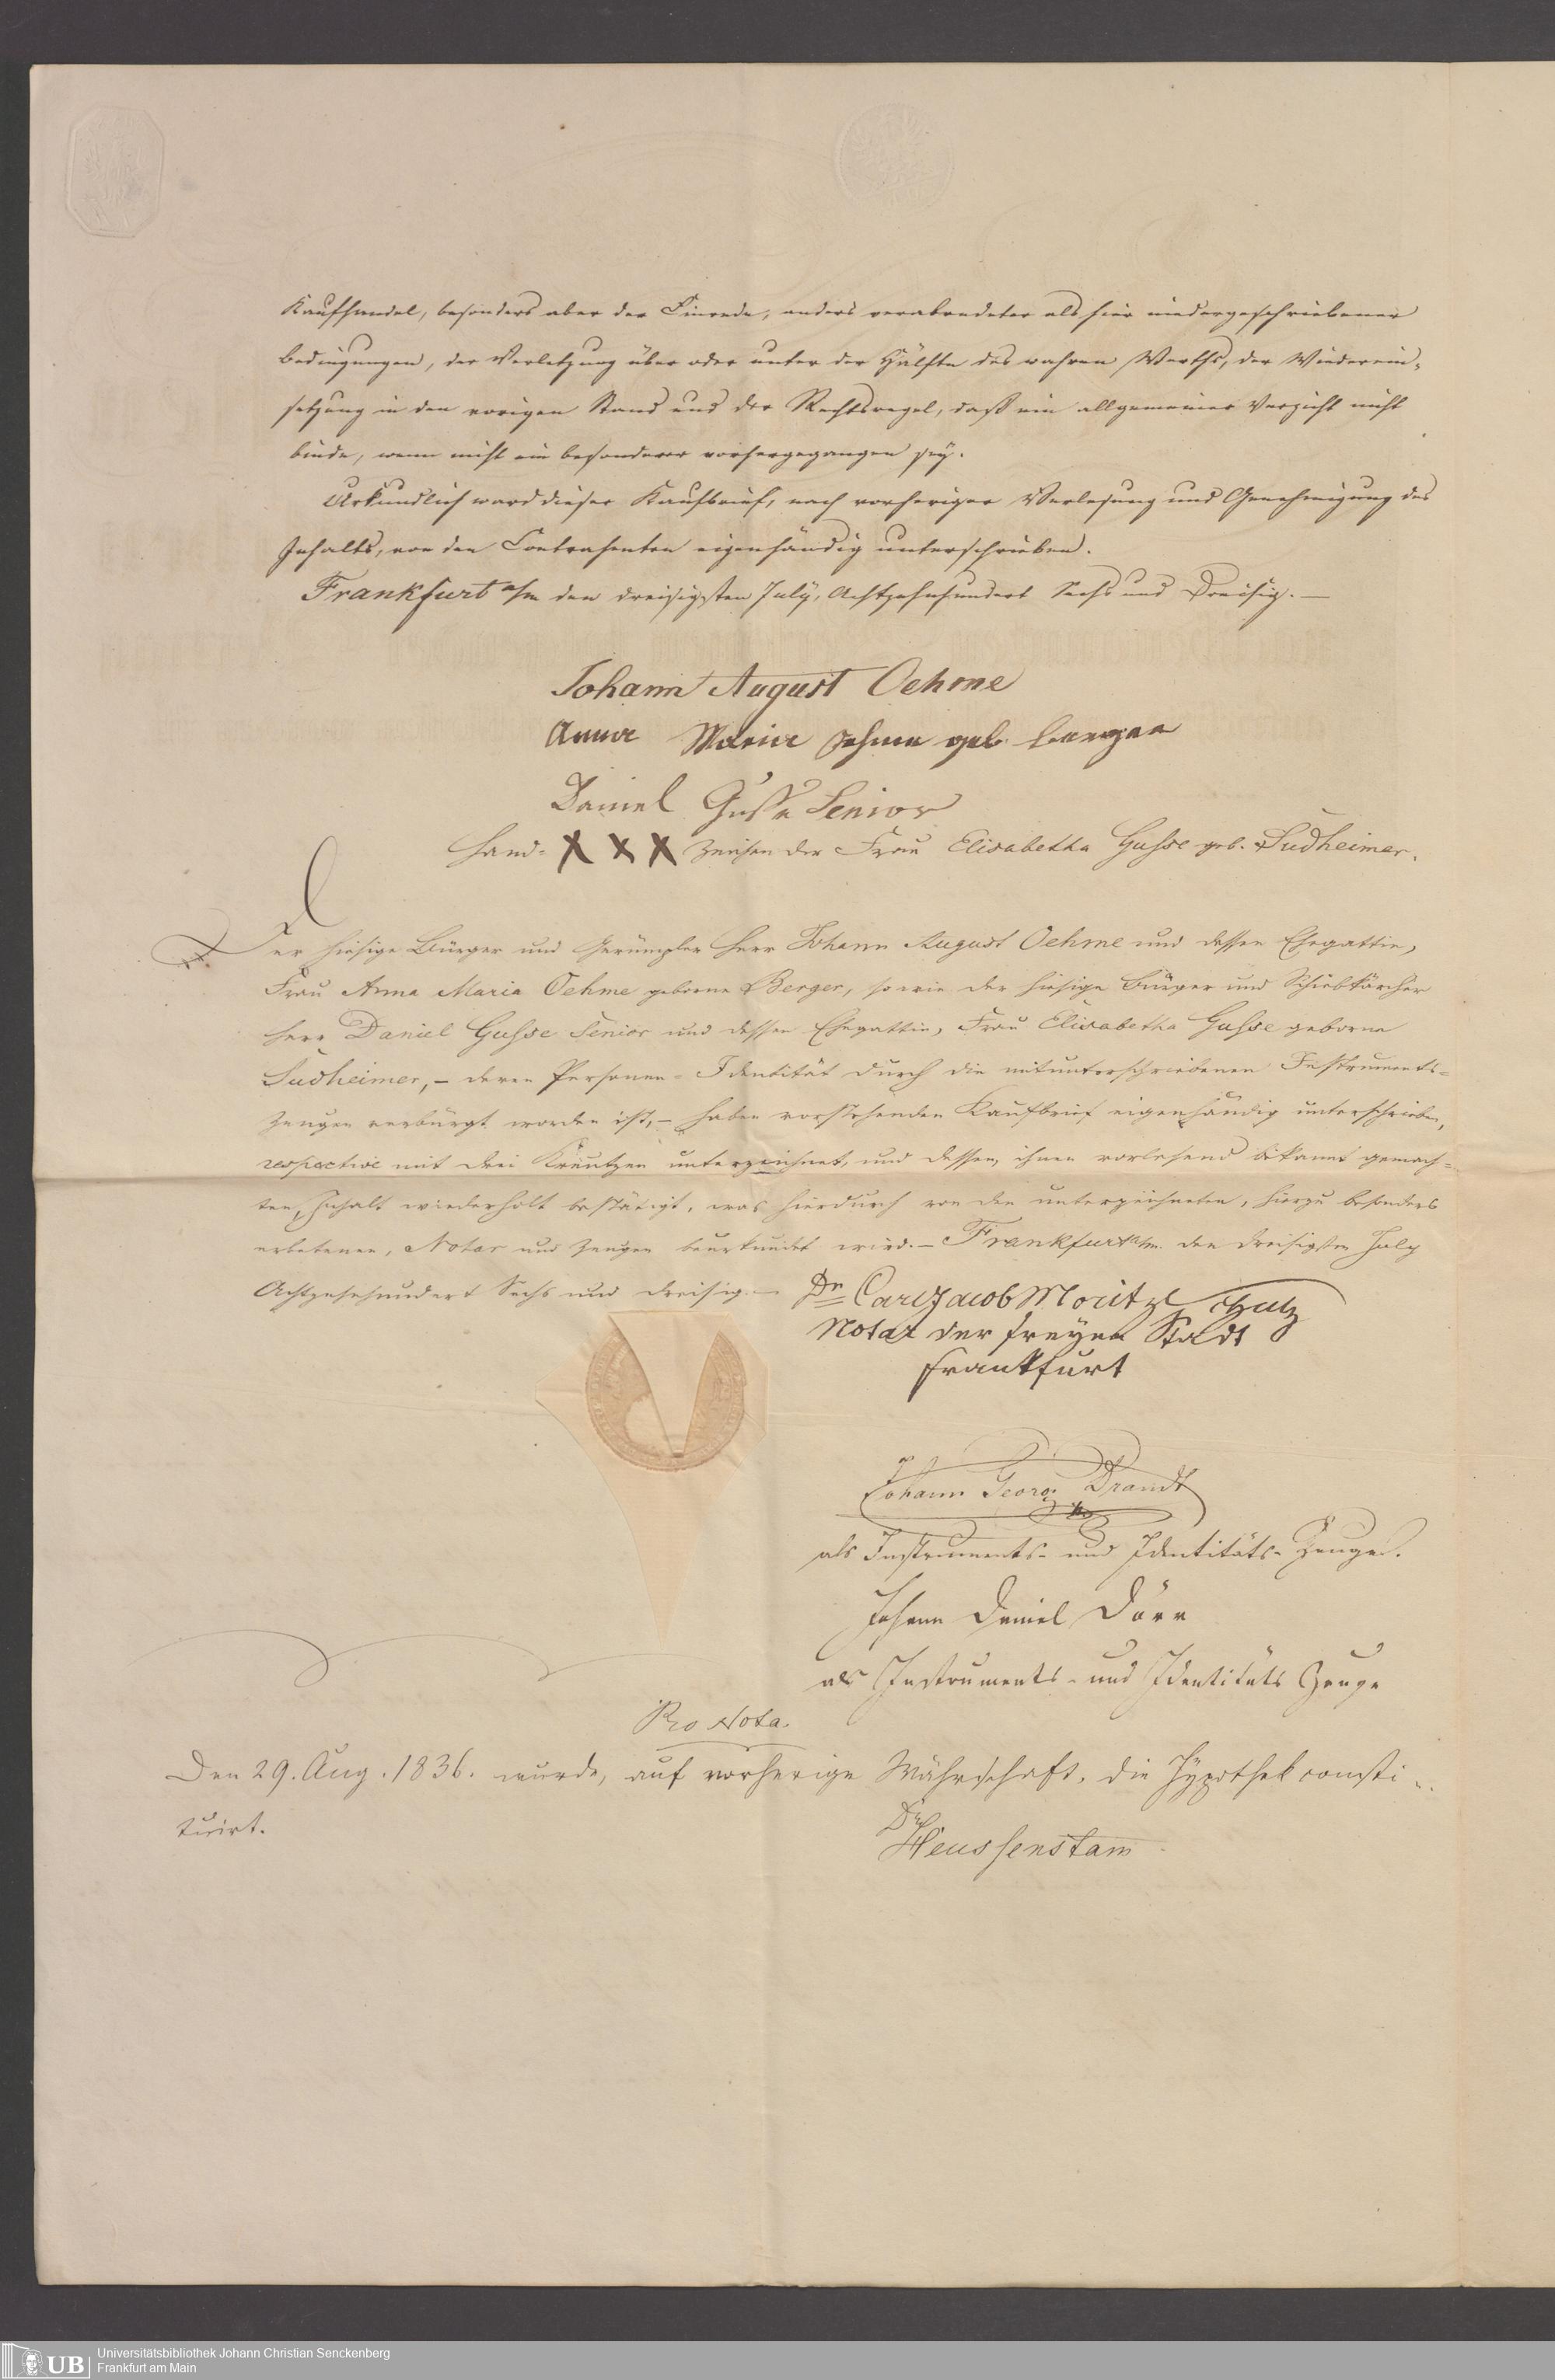 Kaufhandel, besonders aber der Einrede, anders verabredeter als hier niedergeschriebener
Bedingungen, der Verletzung über oder unter der Hälfte des wahren Werths, der Wiederein-
setzung in den vorigen Stand und der Rechtsregel, daß ein allgemeiner Verzicht nicht
binde, wenn nicht ein besonderer vorhergegangen sey.
Urkundlich ward dieser Kaufbrief, nach vorheriger Verlesung und Genehmigung des
Inhalts, von den Contrahenten eigenhändig unterschrieben.
Frankfurt a/m den dreisigsten July, Achtzehnhundert Sechs und Dreisig. —
Johann August Oehme
Anna Maria Oehme geb. Berger
Daniel Gusse Senior
Hand- X X X Zeichen der Frau Elisabetha Gusse geb. Sudheimer.
Der hiesige Bürger und Gerümpler Herr Johann August Oehme und dessen Ehegattin,
Frau Anna Maria Oehme geborne Berger, so wie der hiesige Bürger und Schiebkärcher
Herr Daniel Gusse Senior und dessen Ehegattin, Frau Elisabetha Gusse geborne
Sudheimer, – deren Personen-Identität durch die mitunterschriebenen Instruments-
Zeugen verbürgt worden ist, – haben vorstehenden Kaufbrief eigenhändig unterschrieben,
respective mit drei Kreutzen unterzeichnet, und dessen, ihnen vorlesend bekannt gemach-
ten, Inhalt wiederholt bestätigt, was hierdurch von den unterzeichneten, hierzu besonders
erbetenen, Notar und Zeugen beurkundet wird. – Frankfurt a/m. den dreisigsten July
Achtzehnhundert Sechs und dreisig. —
Dr Carl Jacob Moritz
Notar der freyen Stadt
Frankfurt
Johann Georg Brandt
als Instruments- und Identitäts-Zeuge.
Johann Daniel Dörr
als Instruments- und Identitäts Zeuge
Pro Nota.
Den 29. Aug. 1836. wurde, auf vorherige Währschaft, die Hypothek consti-
tuirt.
Dr
Heussenstam
UB
Universitätsbibliothek Johann Christian Senckenberg
Frankfurt am Main